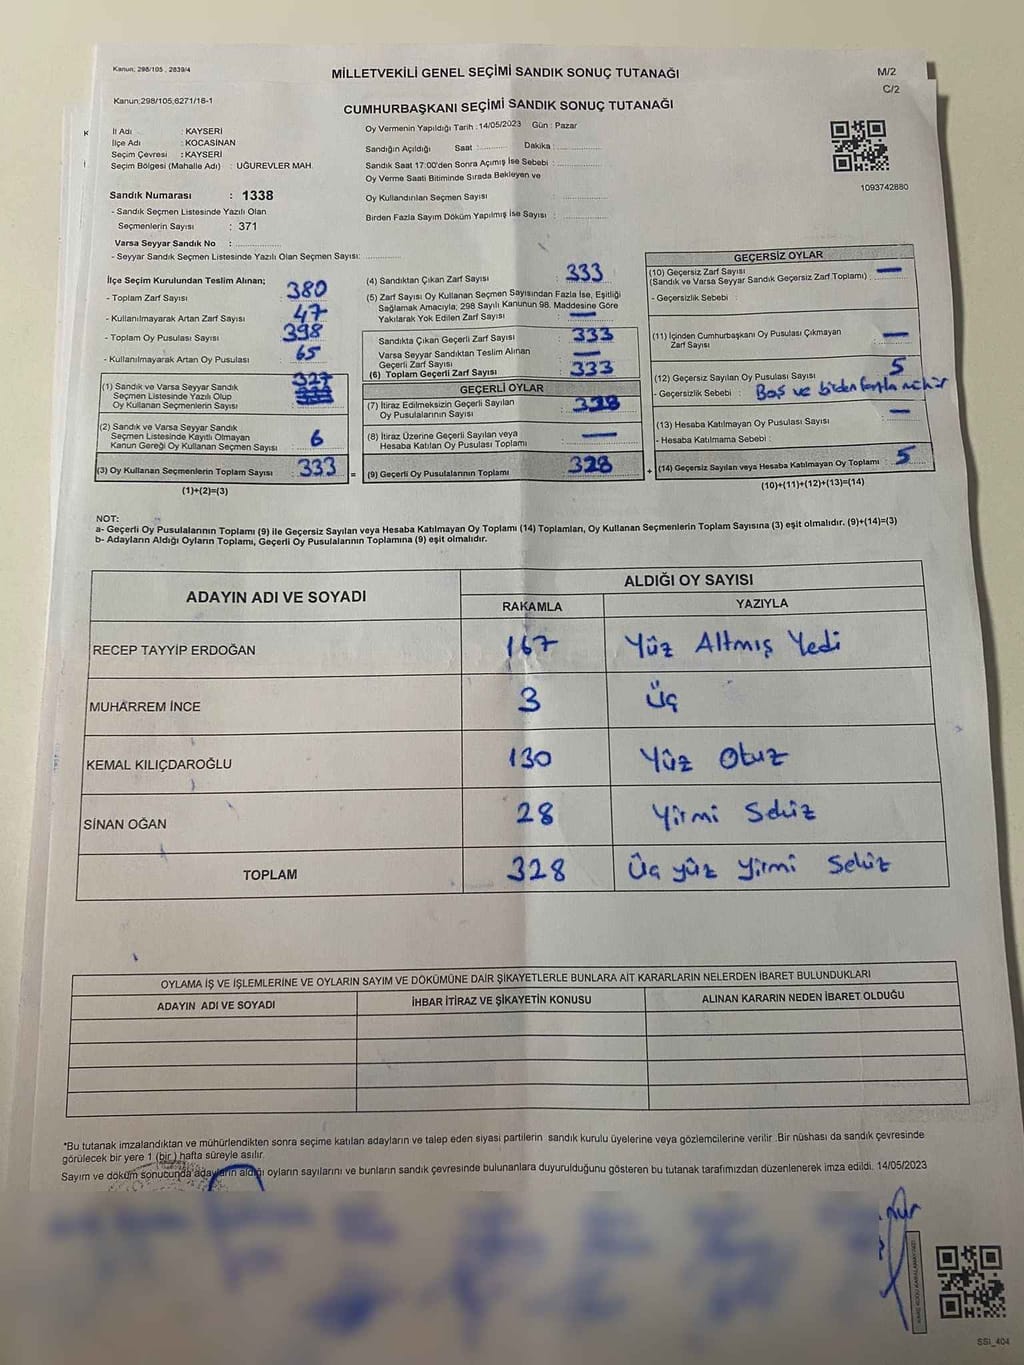 Kanun; 298/105, 2839/4
MİLLETVEKİLİ GENEL SEÇİMİ SANDIK SONUÇ TUTANAĞI
M/2
Kanun;298/105;6271/18-1
CUMHURBAŞKANI SEÇİMİ SANDIK SONUÇ TUTANAĞI
C/2
İl Adı : KAYSERİ
İlçe Adı : KOCASİNAN
Seçim Çevresi : KAYSERİ
Seçim Bölgesi (Mahalle Adı) : UĞUREVLER MAH.
Oy Vermenin Yapıldığı Tarih : 14/05/2023 Gün : Pazar
Sandığın Açıldığı Saat : Dakika :
Sandık Saat 17:00'den Sonra Açılmış İse Sebebi :
Oy Verme Saati Bitiminde Sırada Bekleyen ve
Oy Kullandırılan Seçmen Sayısı :
Birden Fazla Sayım Döküm Yapılmış İse Sayısı :
1093742880
Sandık Numarası : 1338
- Sandık Seçmen Listesinde Yazılı Olan
Seçmenlerin Sayısı : 371
Varsa Seyyar Sandık No :
- Seyyar Sandık Seçmen Listesinde Yazılı Olan Seçmen Sayısı:
İlçe Seçim Kurulundan Teslim Alınan;
- Toplam Zarf Sayısı : 380
- Kullanılmayarak Artan Zarf Sayısı : 47
- Toplam Oy Pusulası Sayısı : 398
- Kullanılmayarak Artan Oy Pusulası : 65
(1) Sandık ve Varsa Seyyar Sandık
Seçmen Listesinde Yazılı Olup
Oy Kullanan Seçmenlerin Sayısı : 327
(2) Sandık ve Varsa Seyyar Sandık
Seçmen Listesinde Kayıtlı Olmayan
Kanun Gereği Oy Kullanan Seçmen Sayısı : 6
(3) Oy Kullanan Seçmenlerin Toplam Sayısı : 333 =
(1)+(2)=(3)
(4) Sandıktan Çıkan Zarf Sayısı : 333
(5) Zarf Sayısı Oy Kullanan Seçmen Sayısından Fazla İse, Eşitliği
Sağlamak Amacıyla; 298 Sayılı Kanunun 98. Maddesine Göre
Yakılarak Yok Edilen Zarf Sayısı : —
Sandıkta Çıkan Geçerli Zarf Sayısı : 333
Varsa Seyyar Sandıktan Teslim Alınan
Geçerli Zarf Sayısı : —
(6) Toplam Geçerli Zarf Sayısı : 333
GEÇERLİ OYLAR
(7) İtiraz Edilmeksizin Geçerli Sayılan
Oy Pusulalarının Sayısı : 328
(8) İtiraz Üzerine Geçerli Sayılan veya
Hesaba Katılan Oy Pusulası Toplamı : —
(9) Geçerli Oy Pusulalarının Toplamı : 328 +
GEÇERSİZ OYLAR
(10) Geçersiz Zarf Sayısı : —
(Sandık ve Varsa Seyyar Sandık Geçersiz Zarf Toplamı)
- Geçersizlik Sebebi :
(11) İçinden Cumhurbaşkanı Oy Pusulası Çıkmayan
Zarf Sayısı : —
(12) Geçersiz Sayılan Oy Pusulası Sayısı : 5
- Geçersizlik Sebebi : Boş ve birden fazla mühür
(13) Hesaba Katılmayan Oy Pusulası Sayısı : —
- Hesaba Katılmama Sebebi :
(14) Geçersiz Sayılan veya Hesaba Katılmayan Oy Toplamı : 5
(10)+(11)+(12)+(13)=(14)
NOT:
a- Geçerli Oy Pusulalarının Toplamı (9) ile Geçersiz Sayılan veya Hesaba Katılmayan Oy Toplamı (14) Toplamları, Oy Kullanan Seçmenlerin Toplam Sayısına (3) eşit olmalıdır. (9)+(14)=(3)
b- Adayların Aldığı Oyların Toplamı, Geçerli Oy Pusulalarının Toplamına (9) eşit olmalıdır.
ADAYIN ADI VE SOYADI
ALDIĞI OY SAYISI
RAKAMLA YAZIYLA
RECEP TAYYİP ERDOĞAN 167 Yüz Altmış Yedi
MUHARREM İNCE 3 Üç
KEMAL KILIÇDAROĞLU 130 Yüz Otuz
SİNAN OĞAN 28 Yirmi Sekiz
TOPLAM 328 Üç yüz yirmi Sekiz
OYLAMA İŞ VE İŞLEMLERİNE VE OYLARIN SAYIM VE DÖKÜMÜNE DAİR ŞİKAYETLERLE BUNLARA AİT KARARLARIN NELERDEN İBARET BULUNDUKLARI
ADAYIN ADI VE SOYADI İHBAR İTİRAZ VE ŞİKAYETİN KONUSU ALINAN KARARIN NEDEN İBARET OLDUĞU
*Bu tutanak imzalandıktan ve mühürlendikten sonra seçime katılan adayların ve talep eden siyasi partilerin sandık kurulu üyelerine veya gözlemcilerine verilir .Bir nüshası da sandık çevresinde
görülecek bir yere 1 (bir ) hafta süreyle asılır.
Sayım ve döküm sonucunda adayların aldığı oyların sayılarını ve bunların sandık çevresinde bulunanlara duyurulduğunu gösteren bu tutanak tarafımızdan düzenlenerek imza edildi. 14/05/2023
SSİ_404